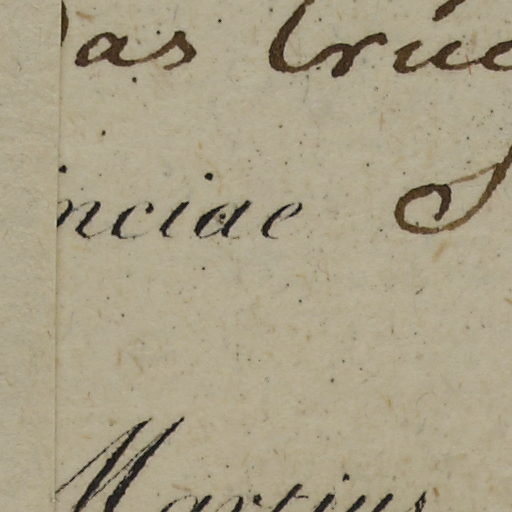 as Cruc
inciae S
Martius